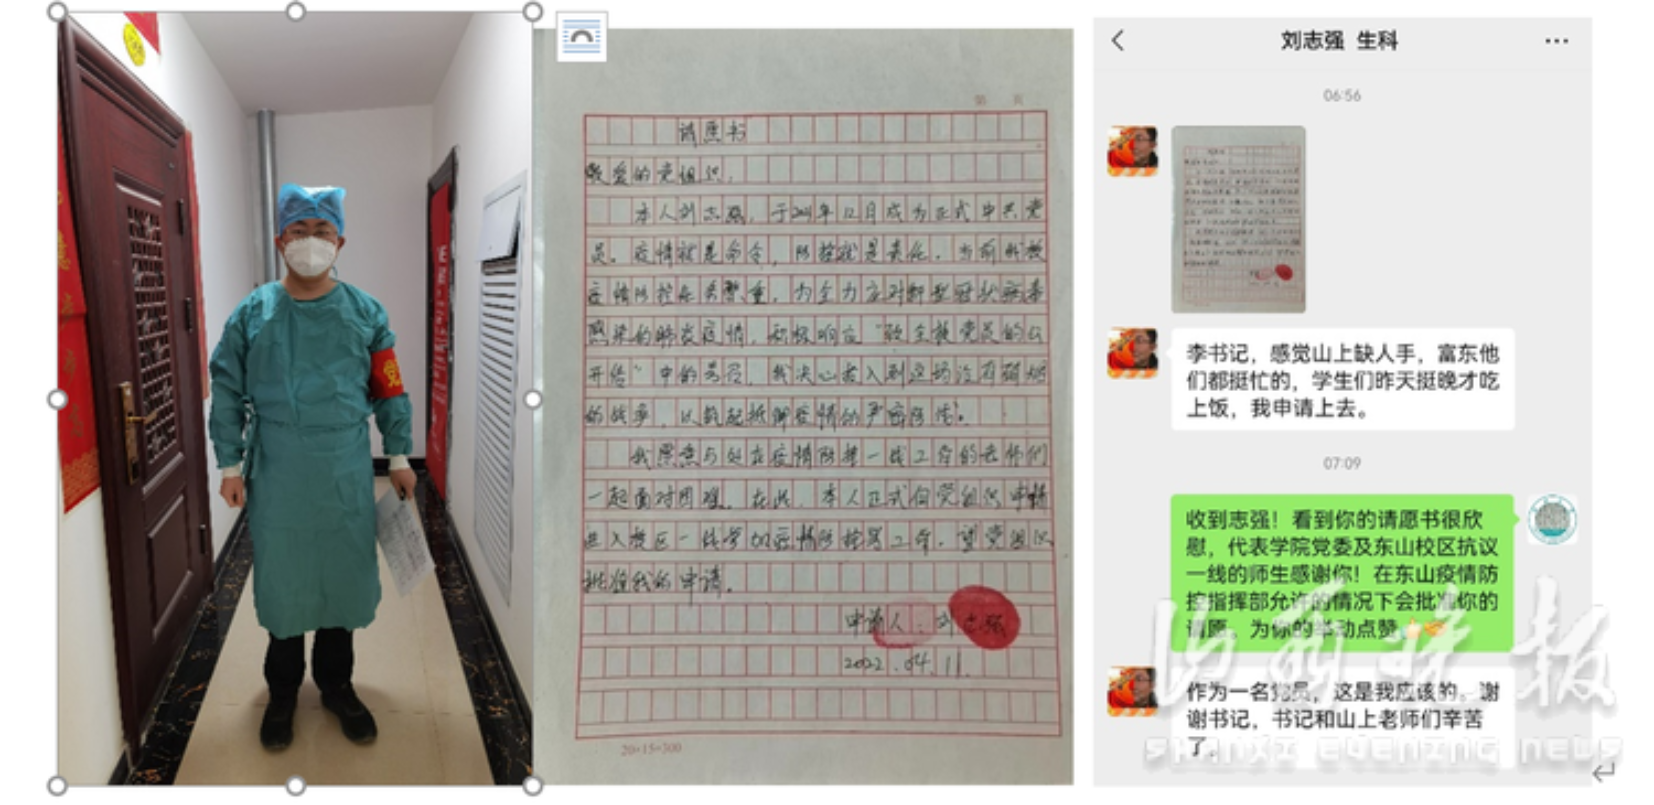 党
第 页
请愿书
敬爱的党组织：
本人刘志强，于2021年12月成为正式中共党
员。疫情就是命令，防控就是责任。当前我校
疫情防控任务繁重，为全力应对新型冠状病毒
感染的肺炎疫情，积极响应“致全校党员的公
开信”中的号召，我决心投入到这场没有硝烟
的战争，以筑起抵御疫情的严密防线。
我愿意与处在疫情防控一线工作的老师们
一起面对困难。在此，本人正式向党组织申请
进入校区一线参加疫情防控等工作。望党组织
批准我的申请。
申请人：刘志强
2022.04.11.
20×15=300
刘志强 生科
06:56
李书记，感觉山上缺人手，富东他
们都挺忙的，学生们昨天挺晚才吃
上饭，我申请上去。
07:09
收到志强！看到你的请愿书很欣
慰，代表学院党委及东山校区抗议
一线的师生感谢你！在东山疫情防
控指挥部允许的情况下会批准你的
请愿。为你的举动点赞
作为一名党员，这是我应该的。谢
谢书记，书记和山上老师们辛苦
了。
山西晚报
SHANXI EVENING NEWS